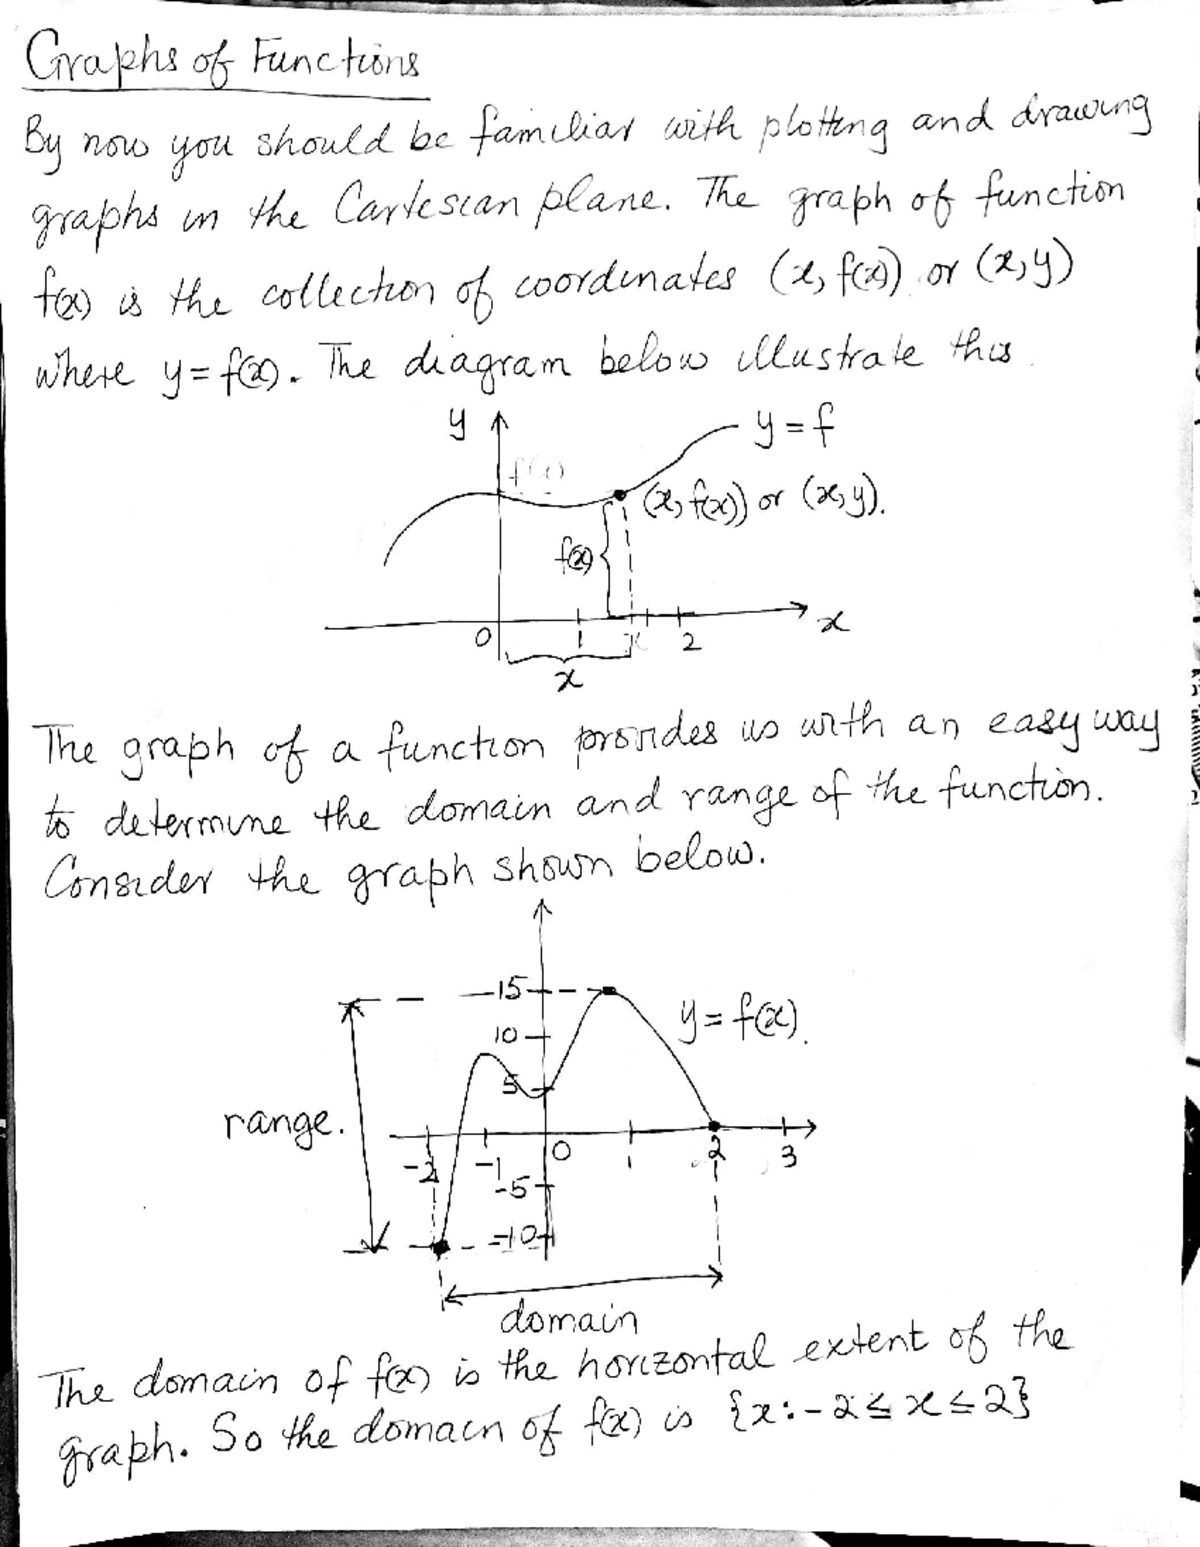 Graphs of Functions
By now you should be familiar with plotting and drawing
graphs in the Cartesian plane. The graph of function
f(x) is the collection of coordinates (x, f(x)) or (x, y)
where y = f(x). The diagram below illustrate this.
y
y = f
f(x)
(x, f(x)) or (x, y).
f(x)
0 1 x 2 x
x
The graph of a function provides us with an easy way
to determine the domain and range of the function.
Consider the graph shown below.
15
y = f(x).
10
5
range.
-2 -1 0 1 2 3
-5
-10
domain
The domain of f(x) is the horizontal extent of the
graph. So the domain of f(x) is {x: -2 ≤ x ≤ 2}